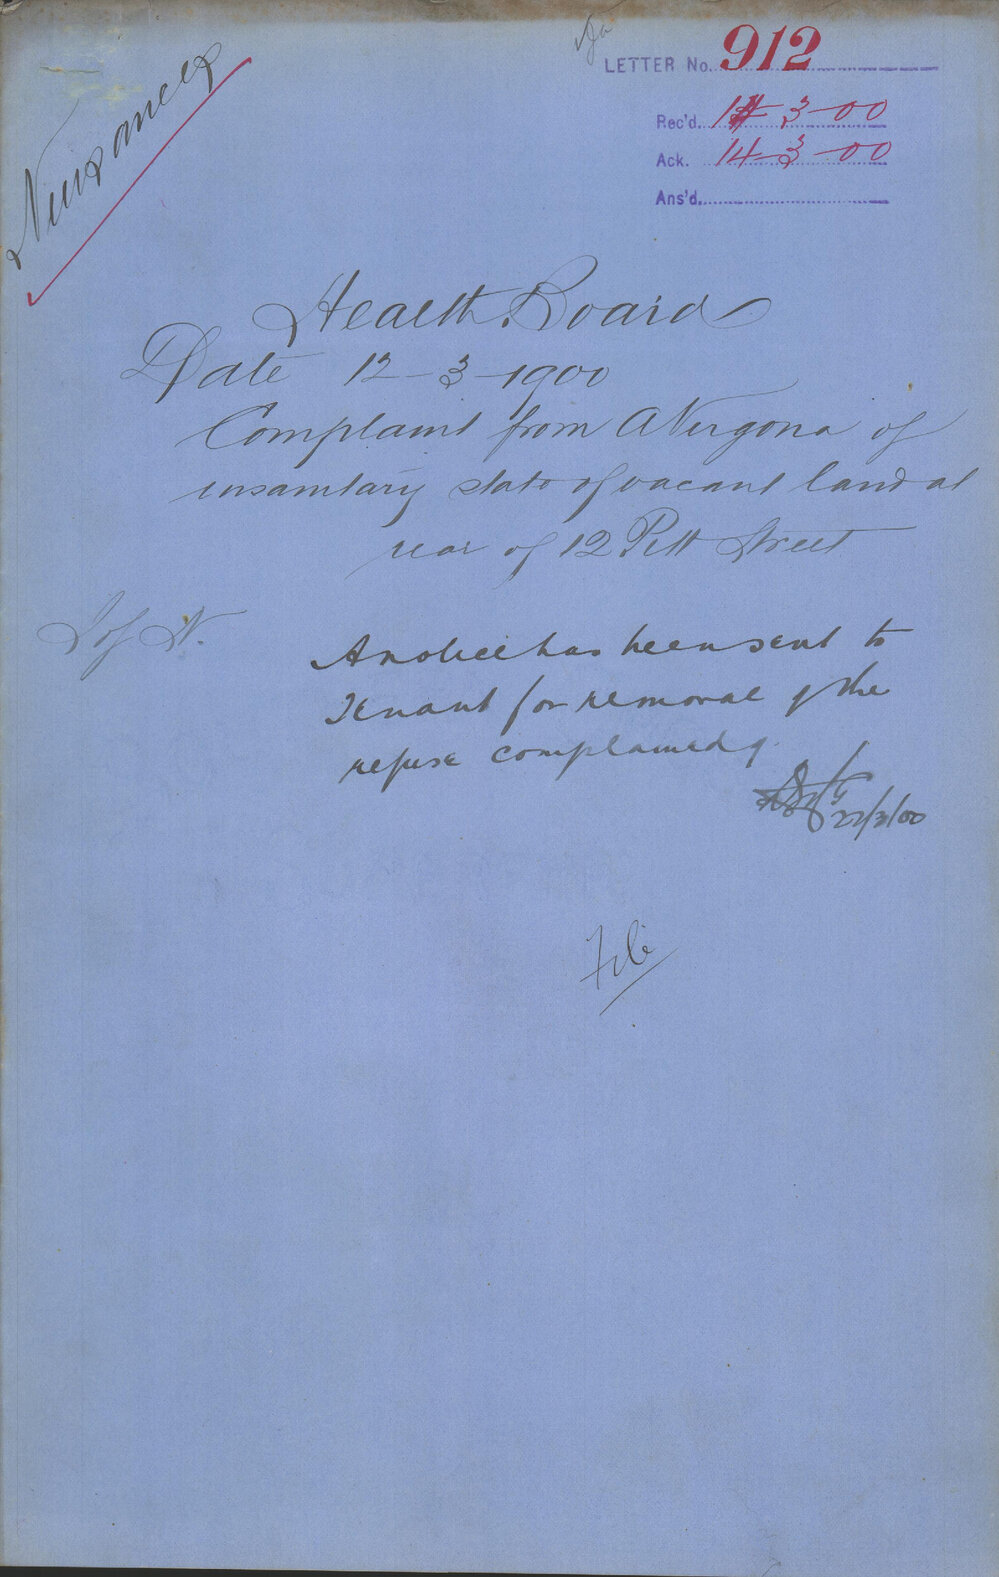 Nuisances
LETTER No. 912
Rec'd. 14-3-00
Ack. 14-3-00
Ans'd.
Health Board
Date 12-3-1900
Complaint from A Nergona of
insanitary state of vacant land at
rear of 12 Pitt Street
I of N.
A notice has been sent to
Tenant for removal of the
refuse complained of
22/3/00
File